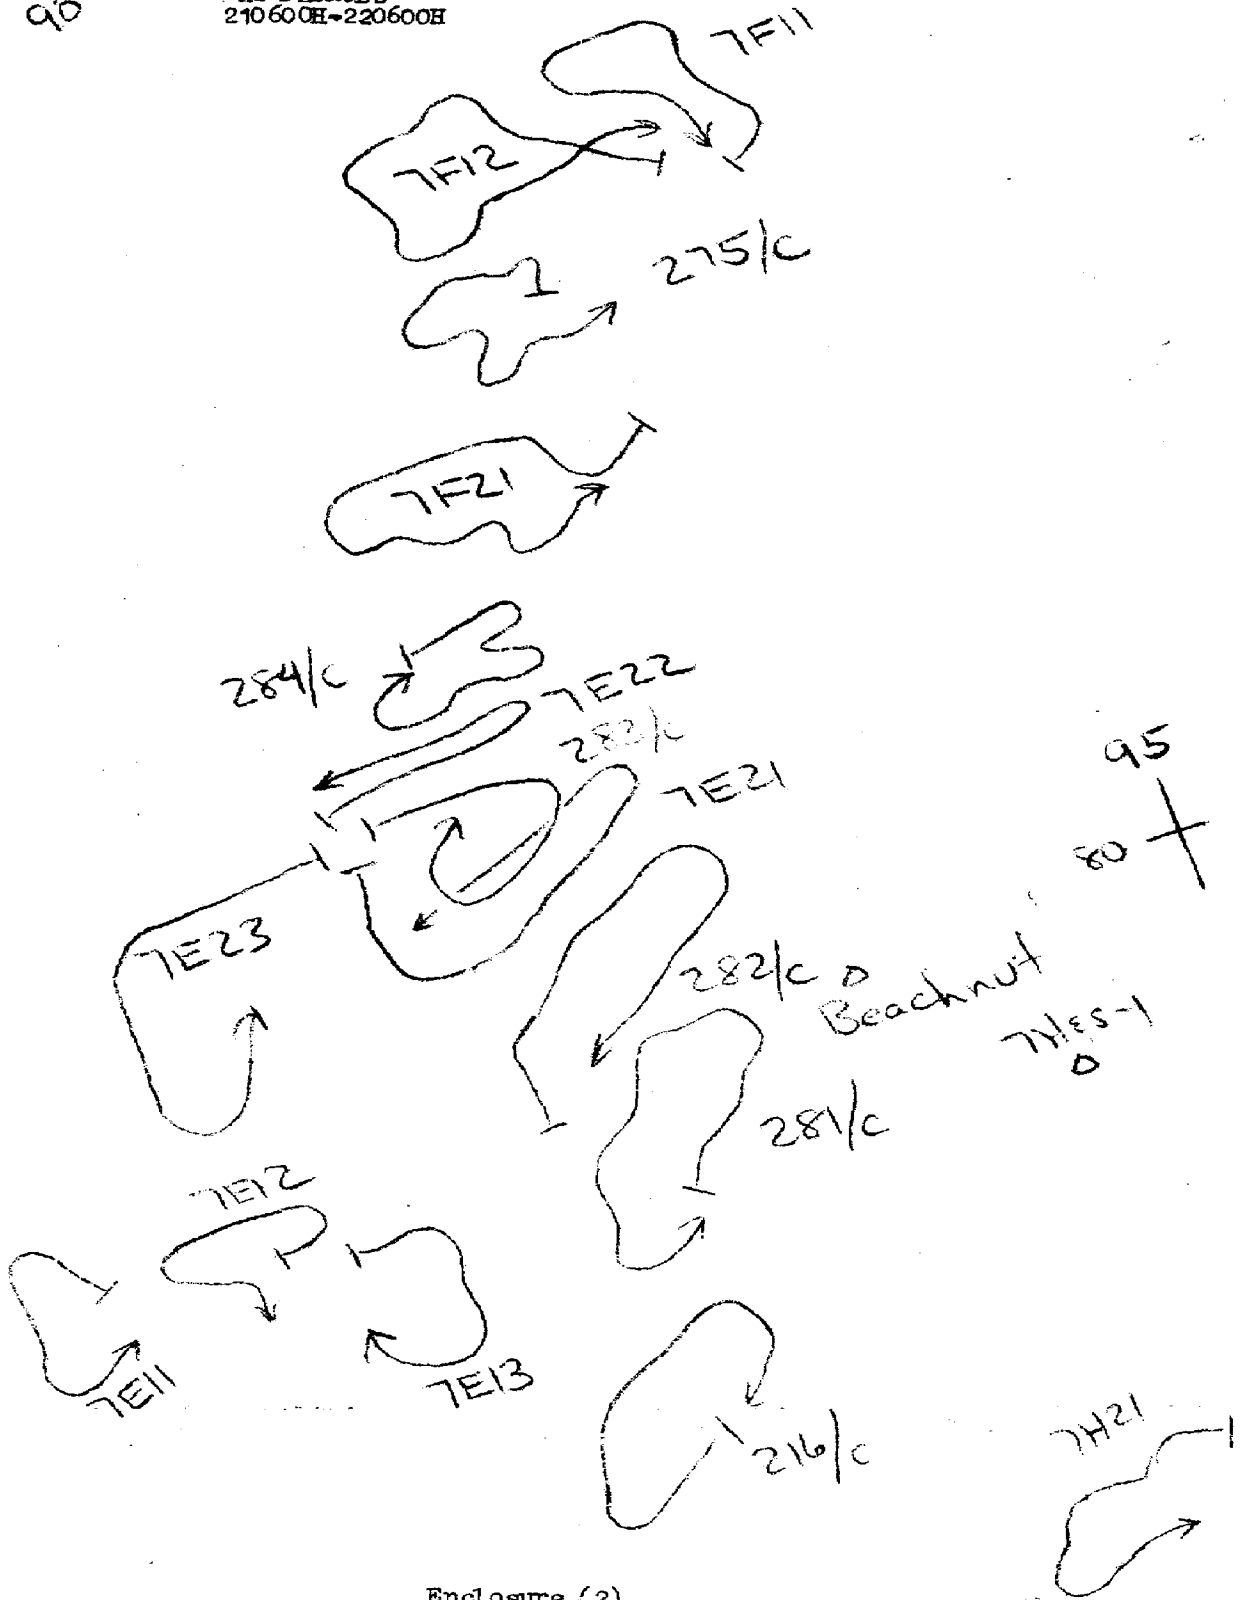 90
210600H-220600H
7F11
7F12
275/C
7F21
284/C
7E22
282/C
7E21
95
80
7E23
282/C
Beachnut
281/C
7E12
7E11
7E13
216/C
7H21
Enclosure (2)